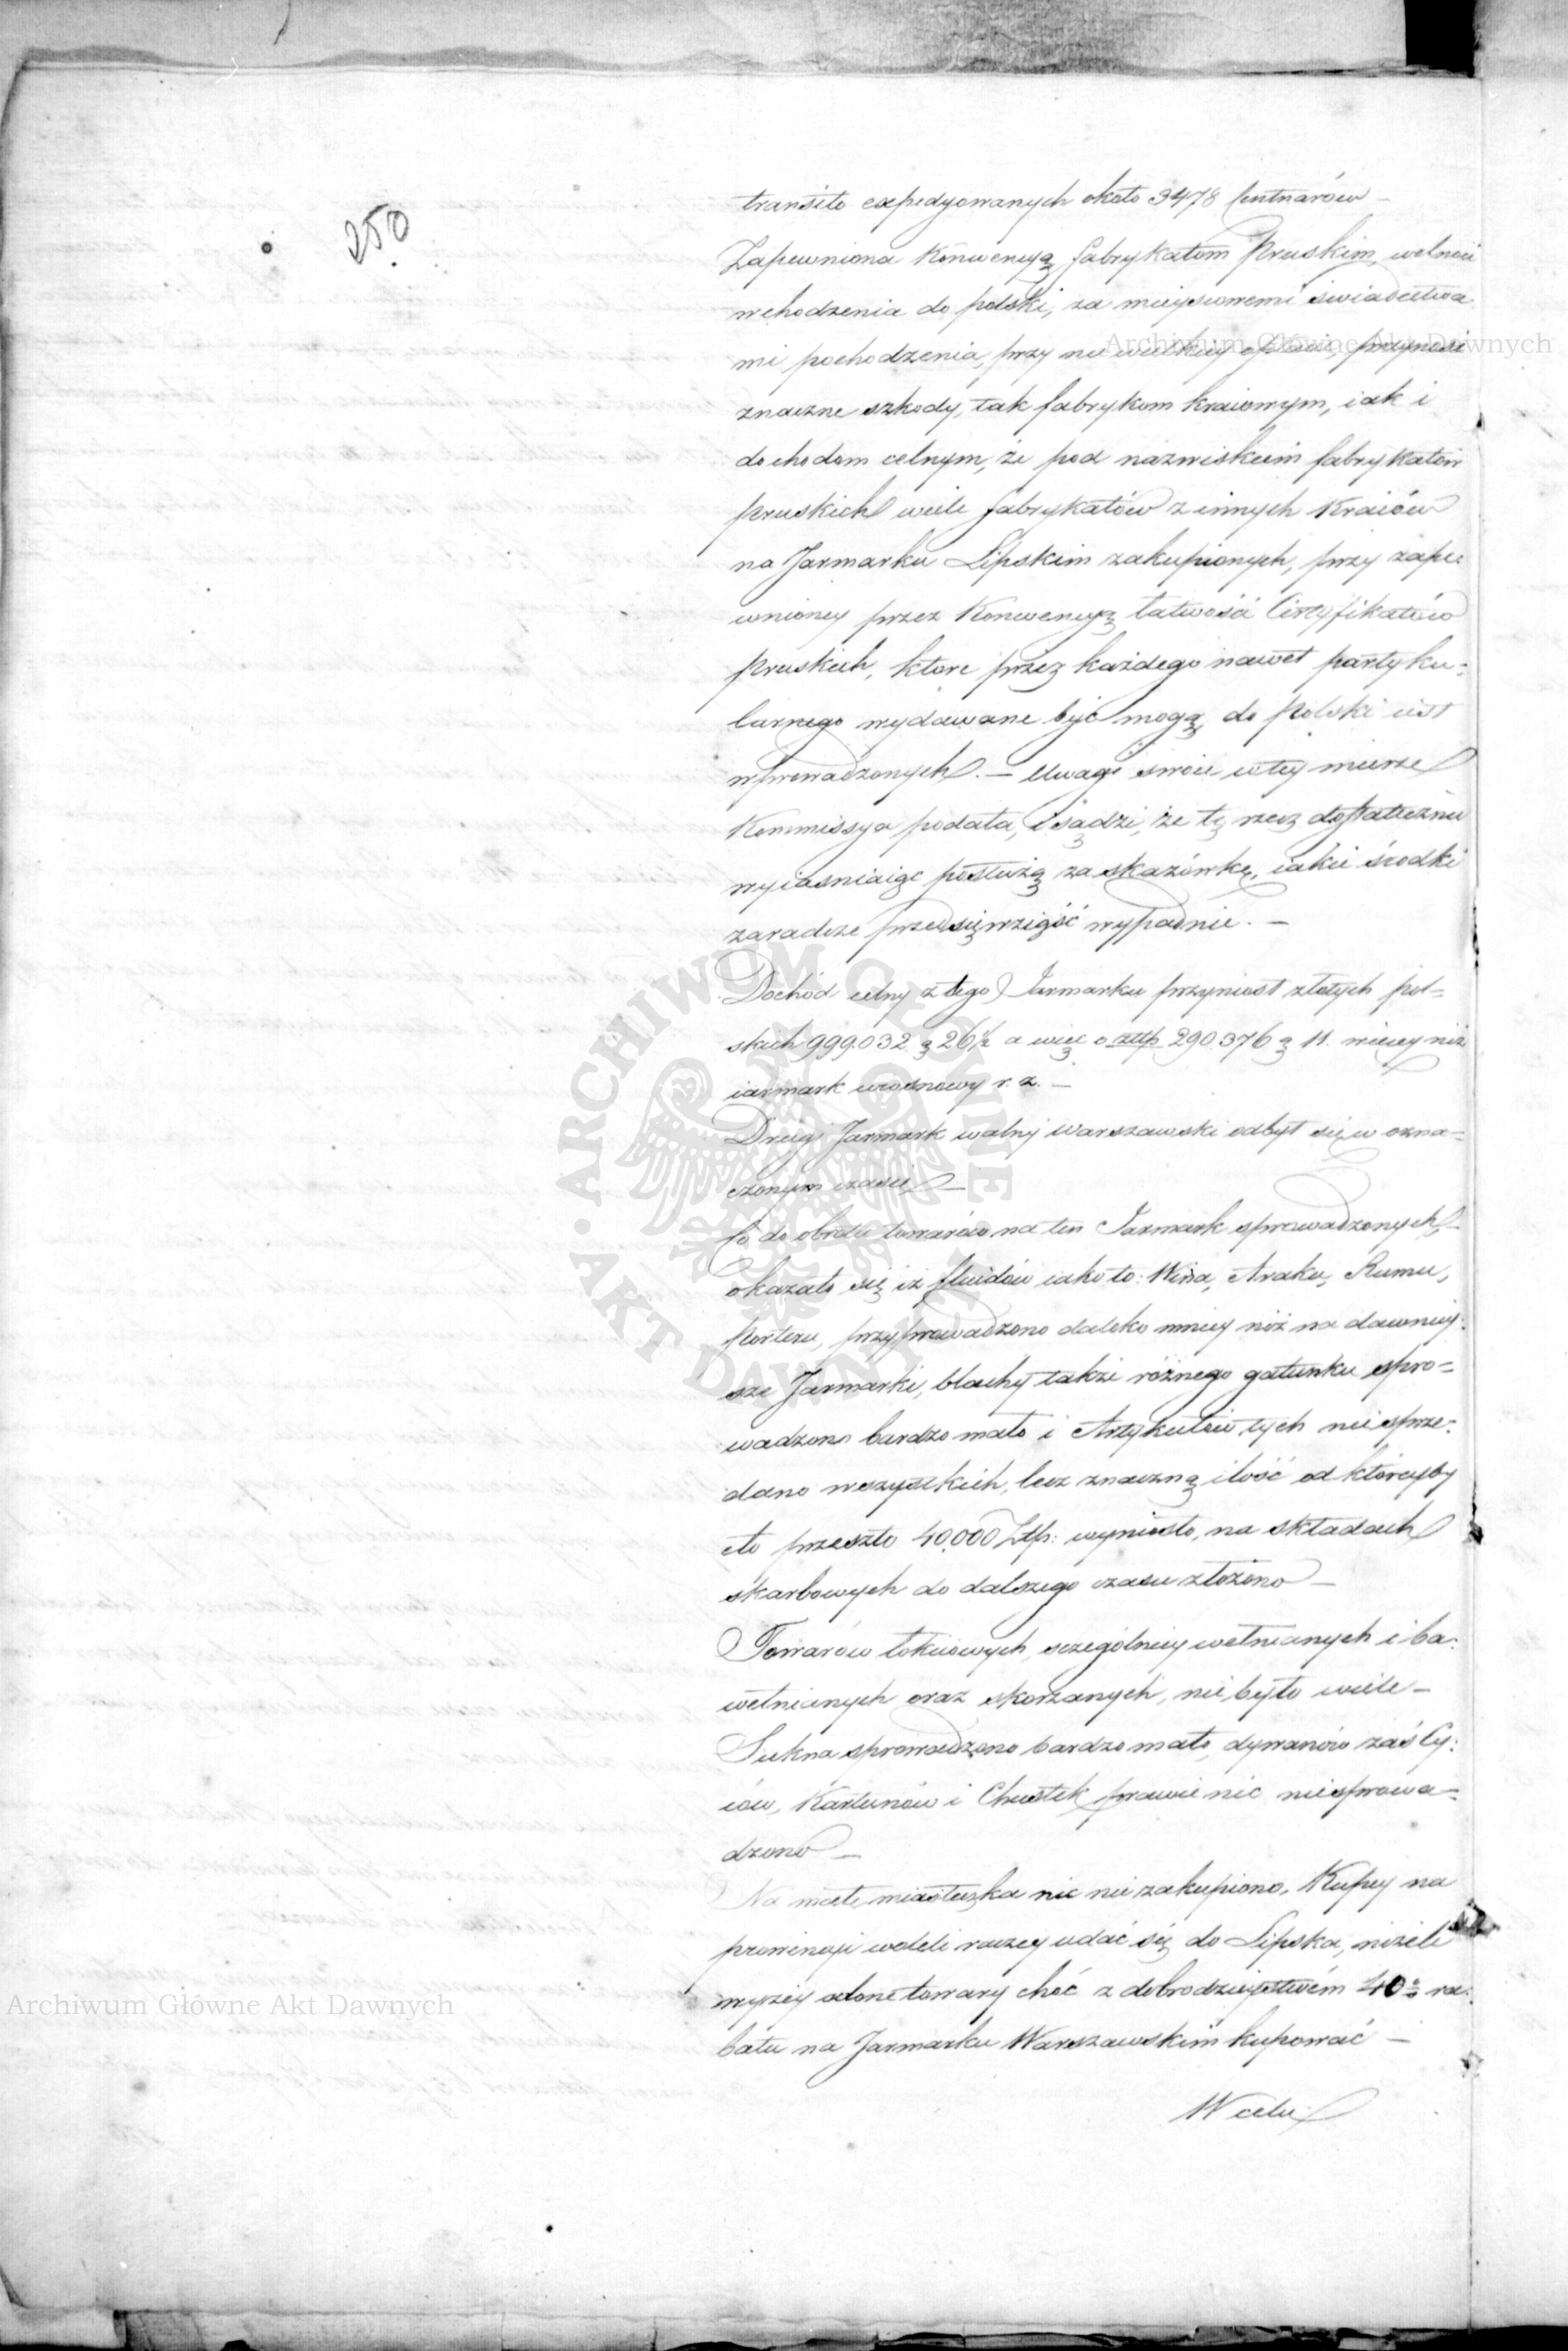 250
transito expedyowanych około 3478 Centnarów –
Zapewniona Konwencyą fabrykatom Pruskim, wolność
wchodzenia do polski, za mieyscowemi świadectwa
mi pochodzenia, przy nie wielkiey opłacie, przynosi
znaczne szkody, tak fabrykom kraiowym, iak i
dochodom celnym, że pod nazwiskiem fabrykatów
pruskich wiele fabrykatów z innych Kraiów
na Jarmarku Lipskim zakupionych, przy zape:
wnioney przez Konwencyą łatwości Certyfikatów
pruskich, ktore przez każdego nawet partyku:
larnego wydawane być mogą, do Polski iest
wprowadzonych. – Uwagi swoie w tey mierze
Kommissya podała, i sądzi, że tę rzecz dostatecznie
wyiaśniaiąc posłużą za skazówkę, iakie środki
zaradcze przedsięwziąść wypadnie. –
Dochód celny z tego Jarmarku przyniosł złotych pol=
skich 999.032 g 26½ a więc o złłp 290.376 g 11. więcey niż
iarmark wiosnowy r. z. –
Drugi Jarmark walny Warszawski odbył się w ozna=
czonym czasie –
Co do obrotu towarów na ten Jarmark sprowadzonych,
okazało się iż fluidów iako to: Wina, Araku, Rumu,
Porteru, przyprowadzono daleko mniey niż na dawniey:
sze Jarmarki, blachy także różnego gatunku spro=
wadzono bardzo mało i Artykułów tych nie sprze:
dano wszystkich, lecz znaczną ilość od któreyby
cło przeszło 40.000 Złp: wyniosło, na składach
skarbowych do dalszego czasu złożono –
Towarów łokciowych, szczególniey wełnianych i ba:
wełnianych oraz skorzanych, nie było wiele –
Sukna sprowadzono bardzo mało, dywanów zaś Cy:
ców, Kartunów i Chustek prawie nic niesprowa=
dzono –
Na małe miasteczka nic nie zakupiono, Kupcy na
prowincyi woleli raczey udać się do Lipska, niżeli
wyżey clone towary choć z dobrodzieystwem 40% ra:
batu na Jarmarku Warszawskim kupować –
W celu
Archiwum Główne Akt Dawnych
Archiwum Główne Akt Dawnych
ARCHIWUM GŁÓWNE • AKT DAWNYCH •